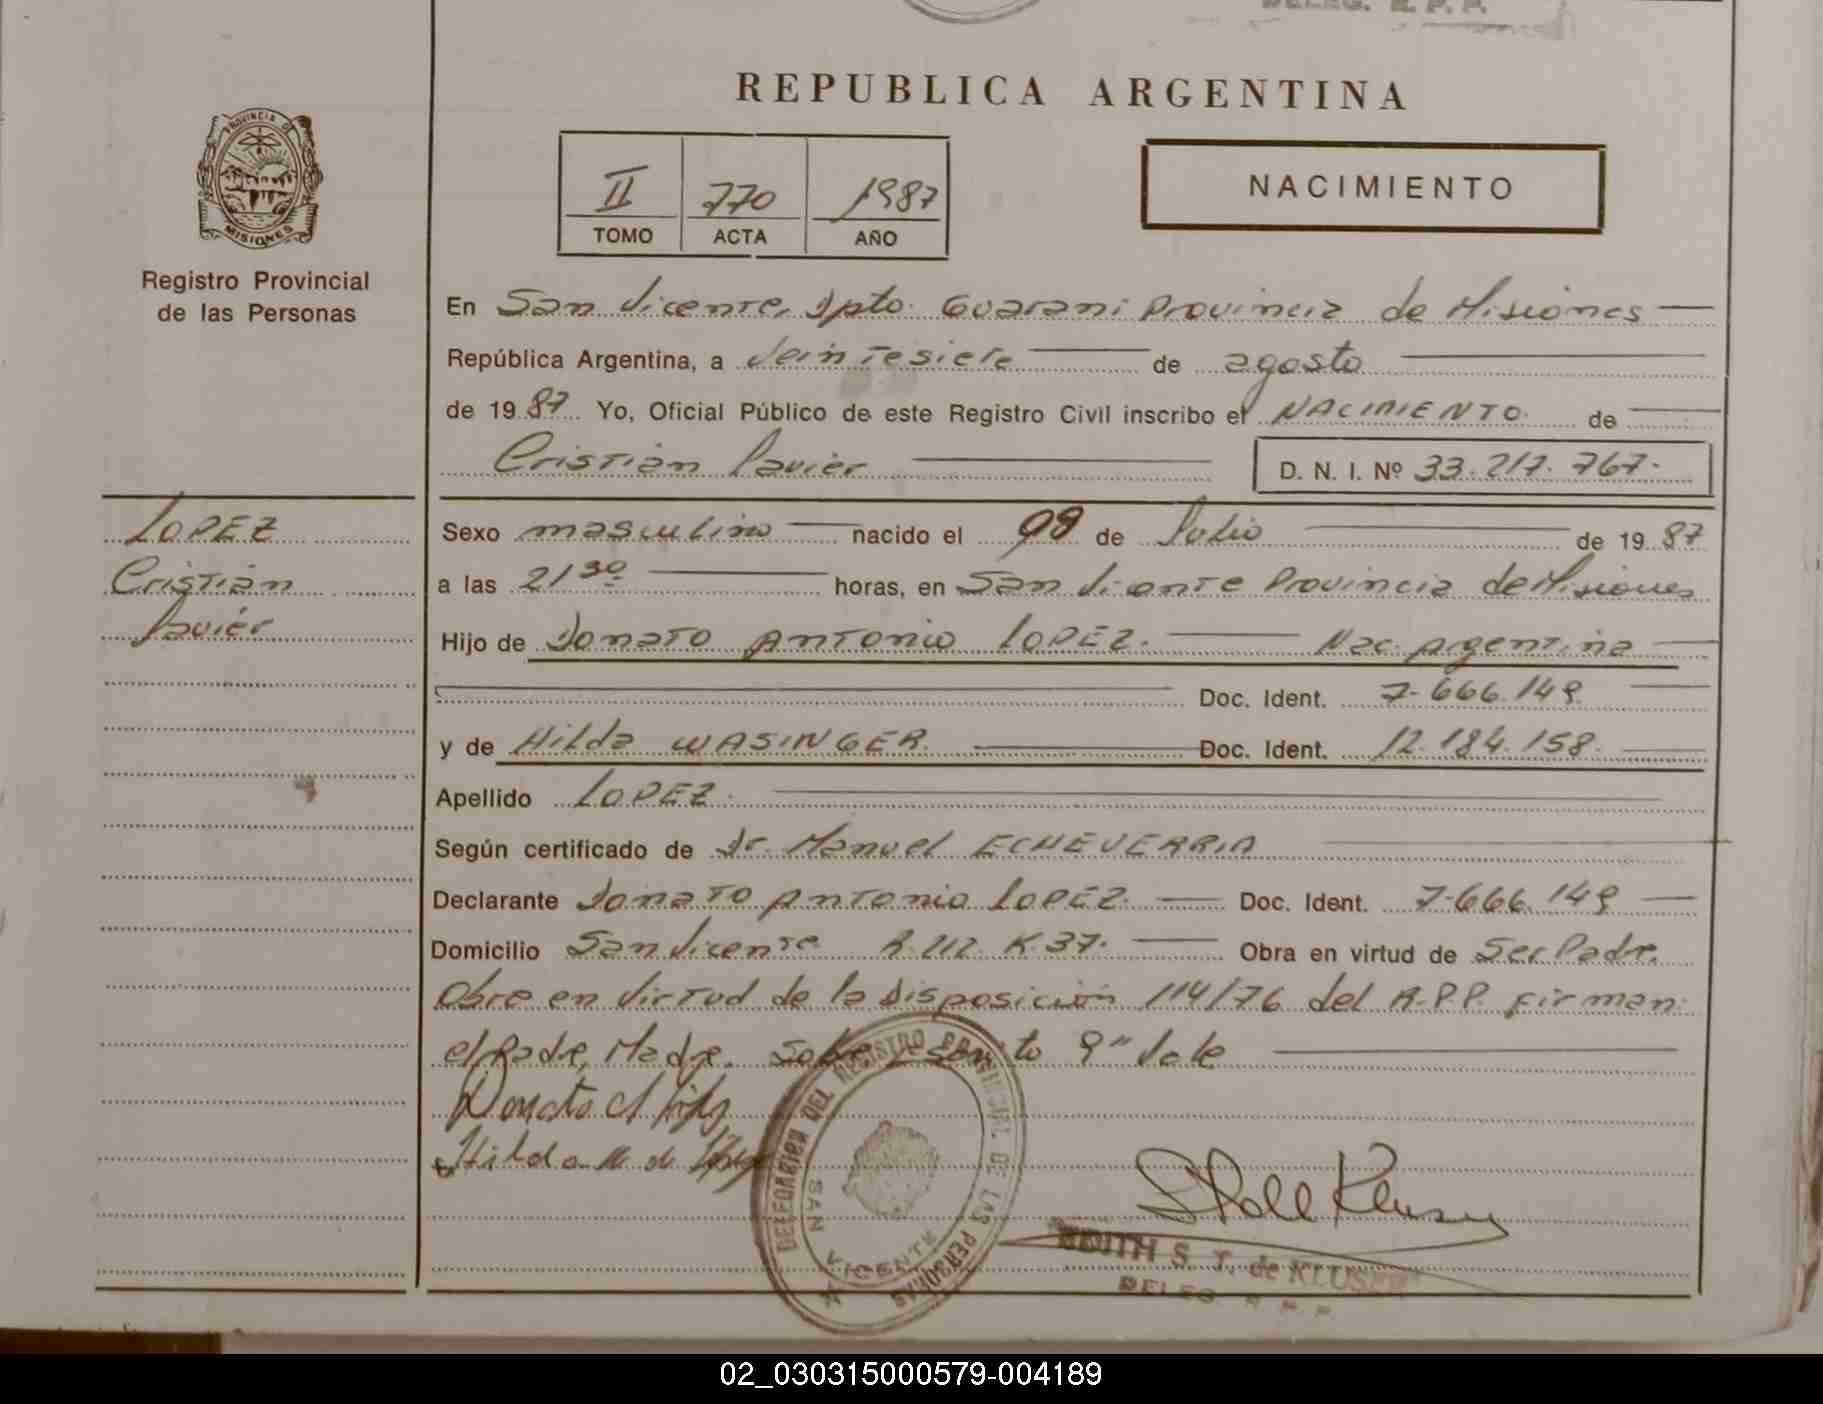 DELEG. R. P. P.
REPUBLICA ARGENTINA
PROVINCIA DE
MISIONES
Registro Provincial
de las Personas
II 770 1987
TOMO ACTA AÑO
NACIMIENTO
En San Vicente, Dpto. Guarani Provincia de Misiones
República Argentina, a Veintesiete de agosto
de 1987 Yo, Oficial Público de este Registro Civil inscribo el NACIMIENTO de
Cristián Javier D. N. I. Nº 33.217.767.
LOPEZ
Cristián
Javiér
Sexo masculino nacido el 09 de Julio de 1987
a las 21 30 horas, en San Vicente Provincia de Misiones
Hijo de Donato Antonio LOPEZ. Nac. Argentina
Doc. Ident. 7.666.149
y de Hilda WASINGER. Doc. Ident. 12.184.158.
Apellido LOPEZ.
Según certificado de Dr. Manuel ECHEVERRIA
Declarante Donato Antonio LOPEZ. Doc. Ident. 7.666.149
Domicilio San Vicente R. 212. K.37. Obra en virtud de Ser Padre.
Obre en virtud de la Disposición 114/76 del R.P.P. firman:
el Padre, Madre. Sobre escrito 9" Vale
Donato A López
Hilda W de López
DELEGACION DEL REGISTRO PROVINCIAL DE LAS PERSONAS
SAN VICENTE
EDITH S. T. de KLUSEN
DELEG. R. P. P.
02_030315000579-004189